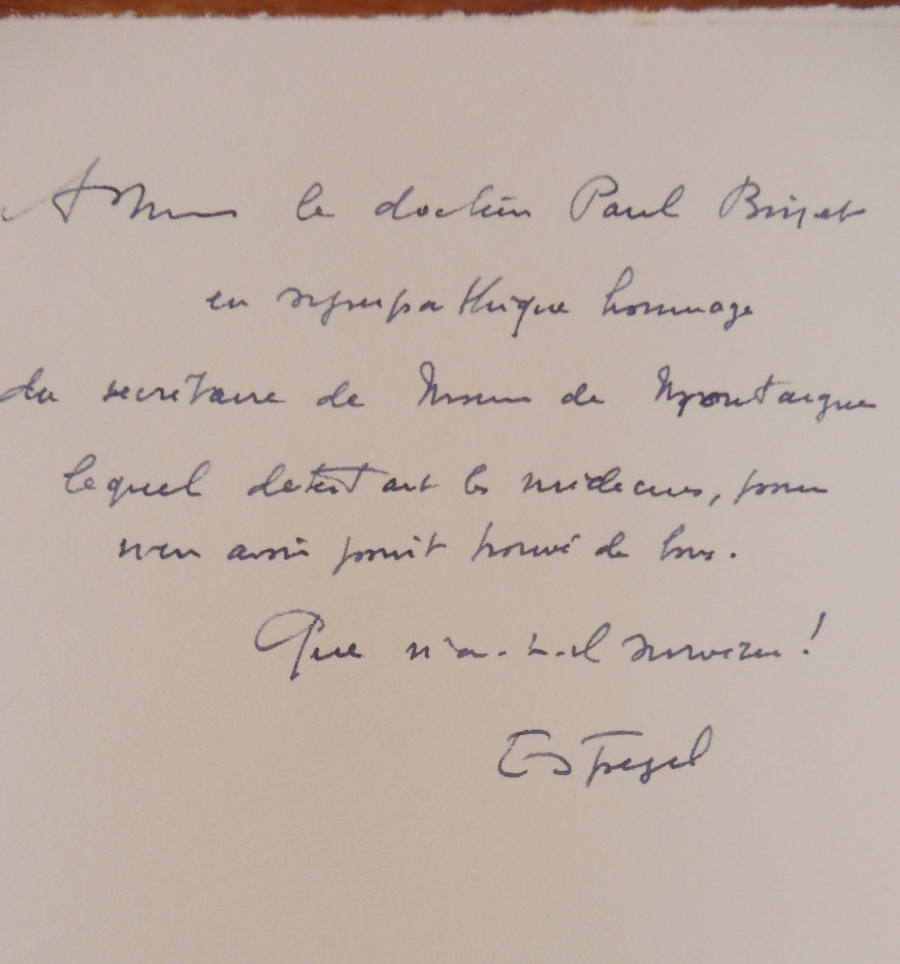 A Mons le docteur Paul Brizet
en sympathique hommage
du secrétaire de Mons de Montaigne
lequel détestait les médecins, pour
n'en avoir point trouvé de bons.
Que n'a-t-il survécu !